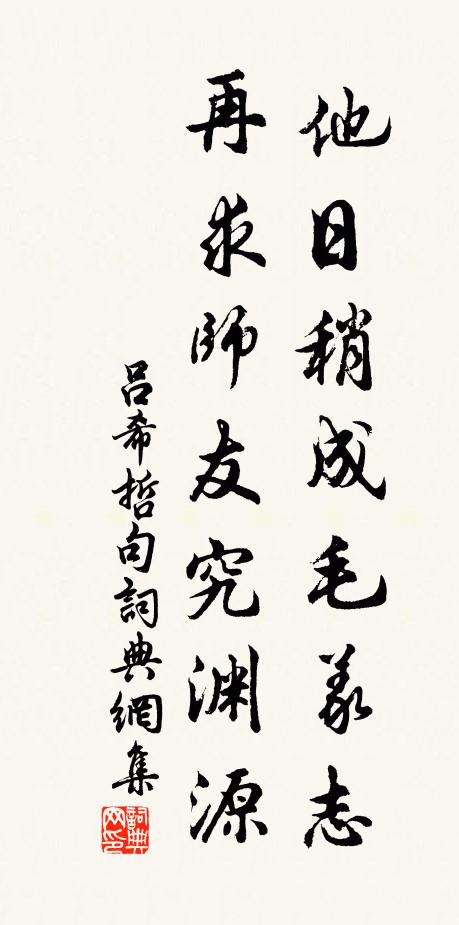 他日稍成毛义志
再求師友究渊源
吕希哲句詞典網集
詞典网印